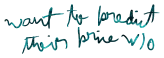 want to predict
their price w/o